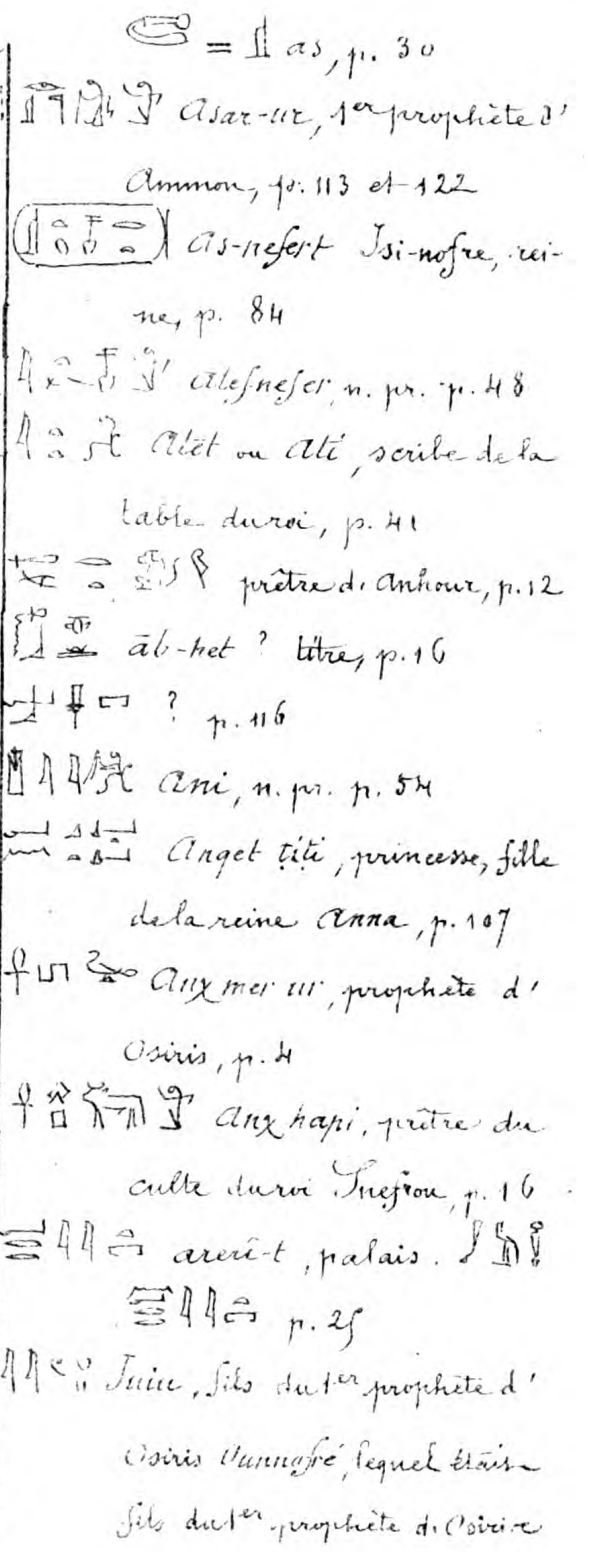 = as, p. 30
Asar-ur, 1er prophète d'
Ammon, p. 113 et 122
As-nefert Isi-nofre, rei-
ne, p. 84
Atefnefer, n. pr. p. 48
Atët ou Ati, scribe de la
table du roi, p. 41
prêtre d. Anhour, p. 12
āb-het ? titre, p. 16
? p. 116
Ani, n. pr. p. 54
Anqet ṭiṭi, princesse, fille
de la reine Anna, p. 107
Anχ mer ur, prophète d'
Osiris, p. 4
Anχ hapi, prêtre du
culte du roi Snefrou, p. 16
arerī-t, palais.
p. 25
Iuiu, fils du 1er prophète d'
Osiris Vunnofré, lequel étais
fils du 1er prophète d. Osiris